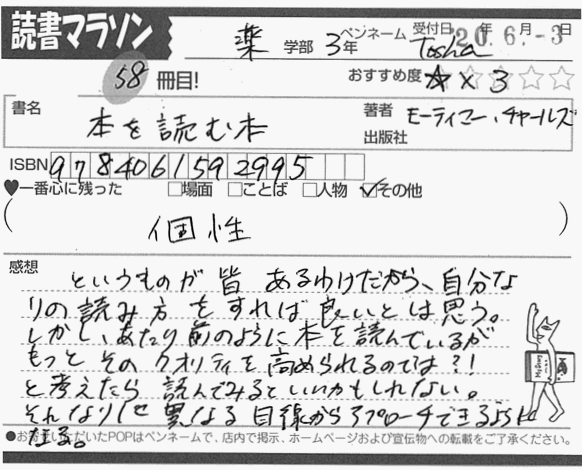 読書マラソン
薬 学部 3年 ペンネーム Tosha 受付日 '20年 6.月-3日
58 冊目! おすすめ度 ★×3
書名 本を読む本
著者 モーティマー・チャールズ
出版社
ISBN 9784061592995
♥一番心に残った □場面 □ことば □人物 ☑その他
( 個性 )
感想 というものが皆あるわけだから、自分な
りの読み方をすれば良いとは思う。
しかし、あたり前のように本を読んでいるが
もっとそのクオリティを高められるのでは?!
と考えたら読んでみるといいかもしれない。
それなりに異なる目線からアプローチできるように
なる。
●お寄せいただいたPOPはペンネームで、店内で掲示、ホームページおよび宣伝物への転載をご了承ください。